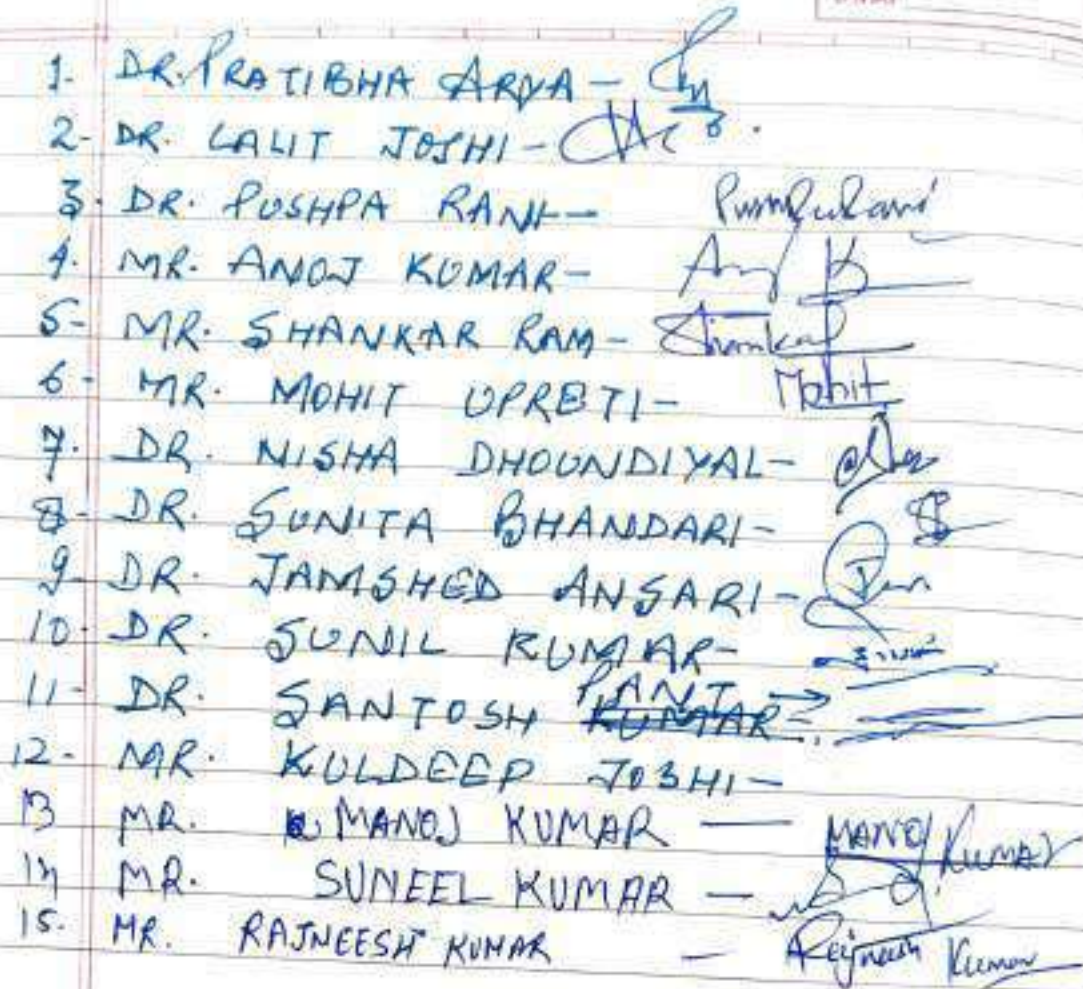 1. DR. PRATIBHA ARYA -
2- DR. LALIT JOSHI -
3. DR. PUSHPA RANI -
4. MR. ANOJ KUMAR -
5- MR. SHANKAR RAM - Shankar
6- MR. MOHIT UPRETI - Mohit
7. DR. NISHA DHOUNDIYAL -
8- DR. SUNITA BHANDARI -
9- DR. JAMSHED ANSARI -
10- DR. SUNIL KUMAR -
11- DR. SANTOSH PANT → KUMAR -
12- MR. KULDEEP JOSHI -
13 MR. MANOJ KUMAR — MANOJ KUMAR
14 MR. SUNEEL KUMAR —
15. MR. RAJNEESH KUMAR — Rajneesh Kumar